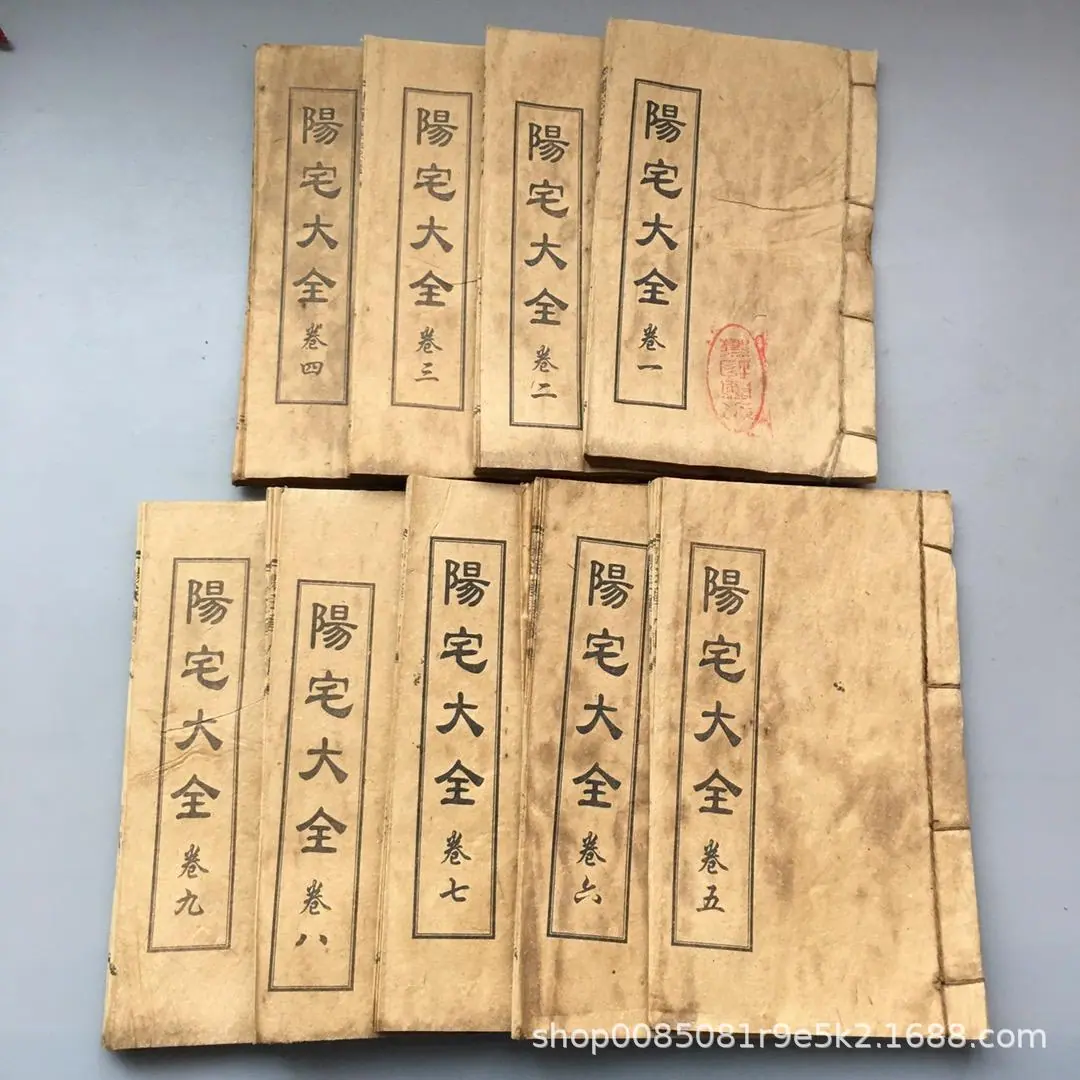 陽宅大全 卷一
陽宅大全 卷二
陽宅大全 卷三
陽宅大全 卷四
陽宅大全 卷五
陽宅大全 卷六
陽宅大全 卷七
陽宅大全 卷八
陽宅大全 卷九
shop0085081r9e5k2.1688.com